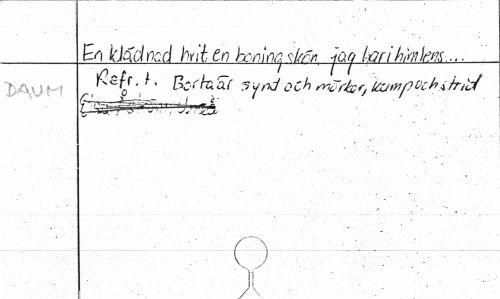 En klädnad hvit en boning skön, jag har i himlens....
DAUM
Refr. t. Borta är synd och mörker, kamp och strid